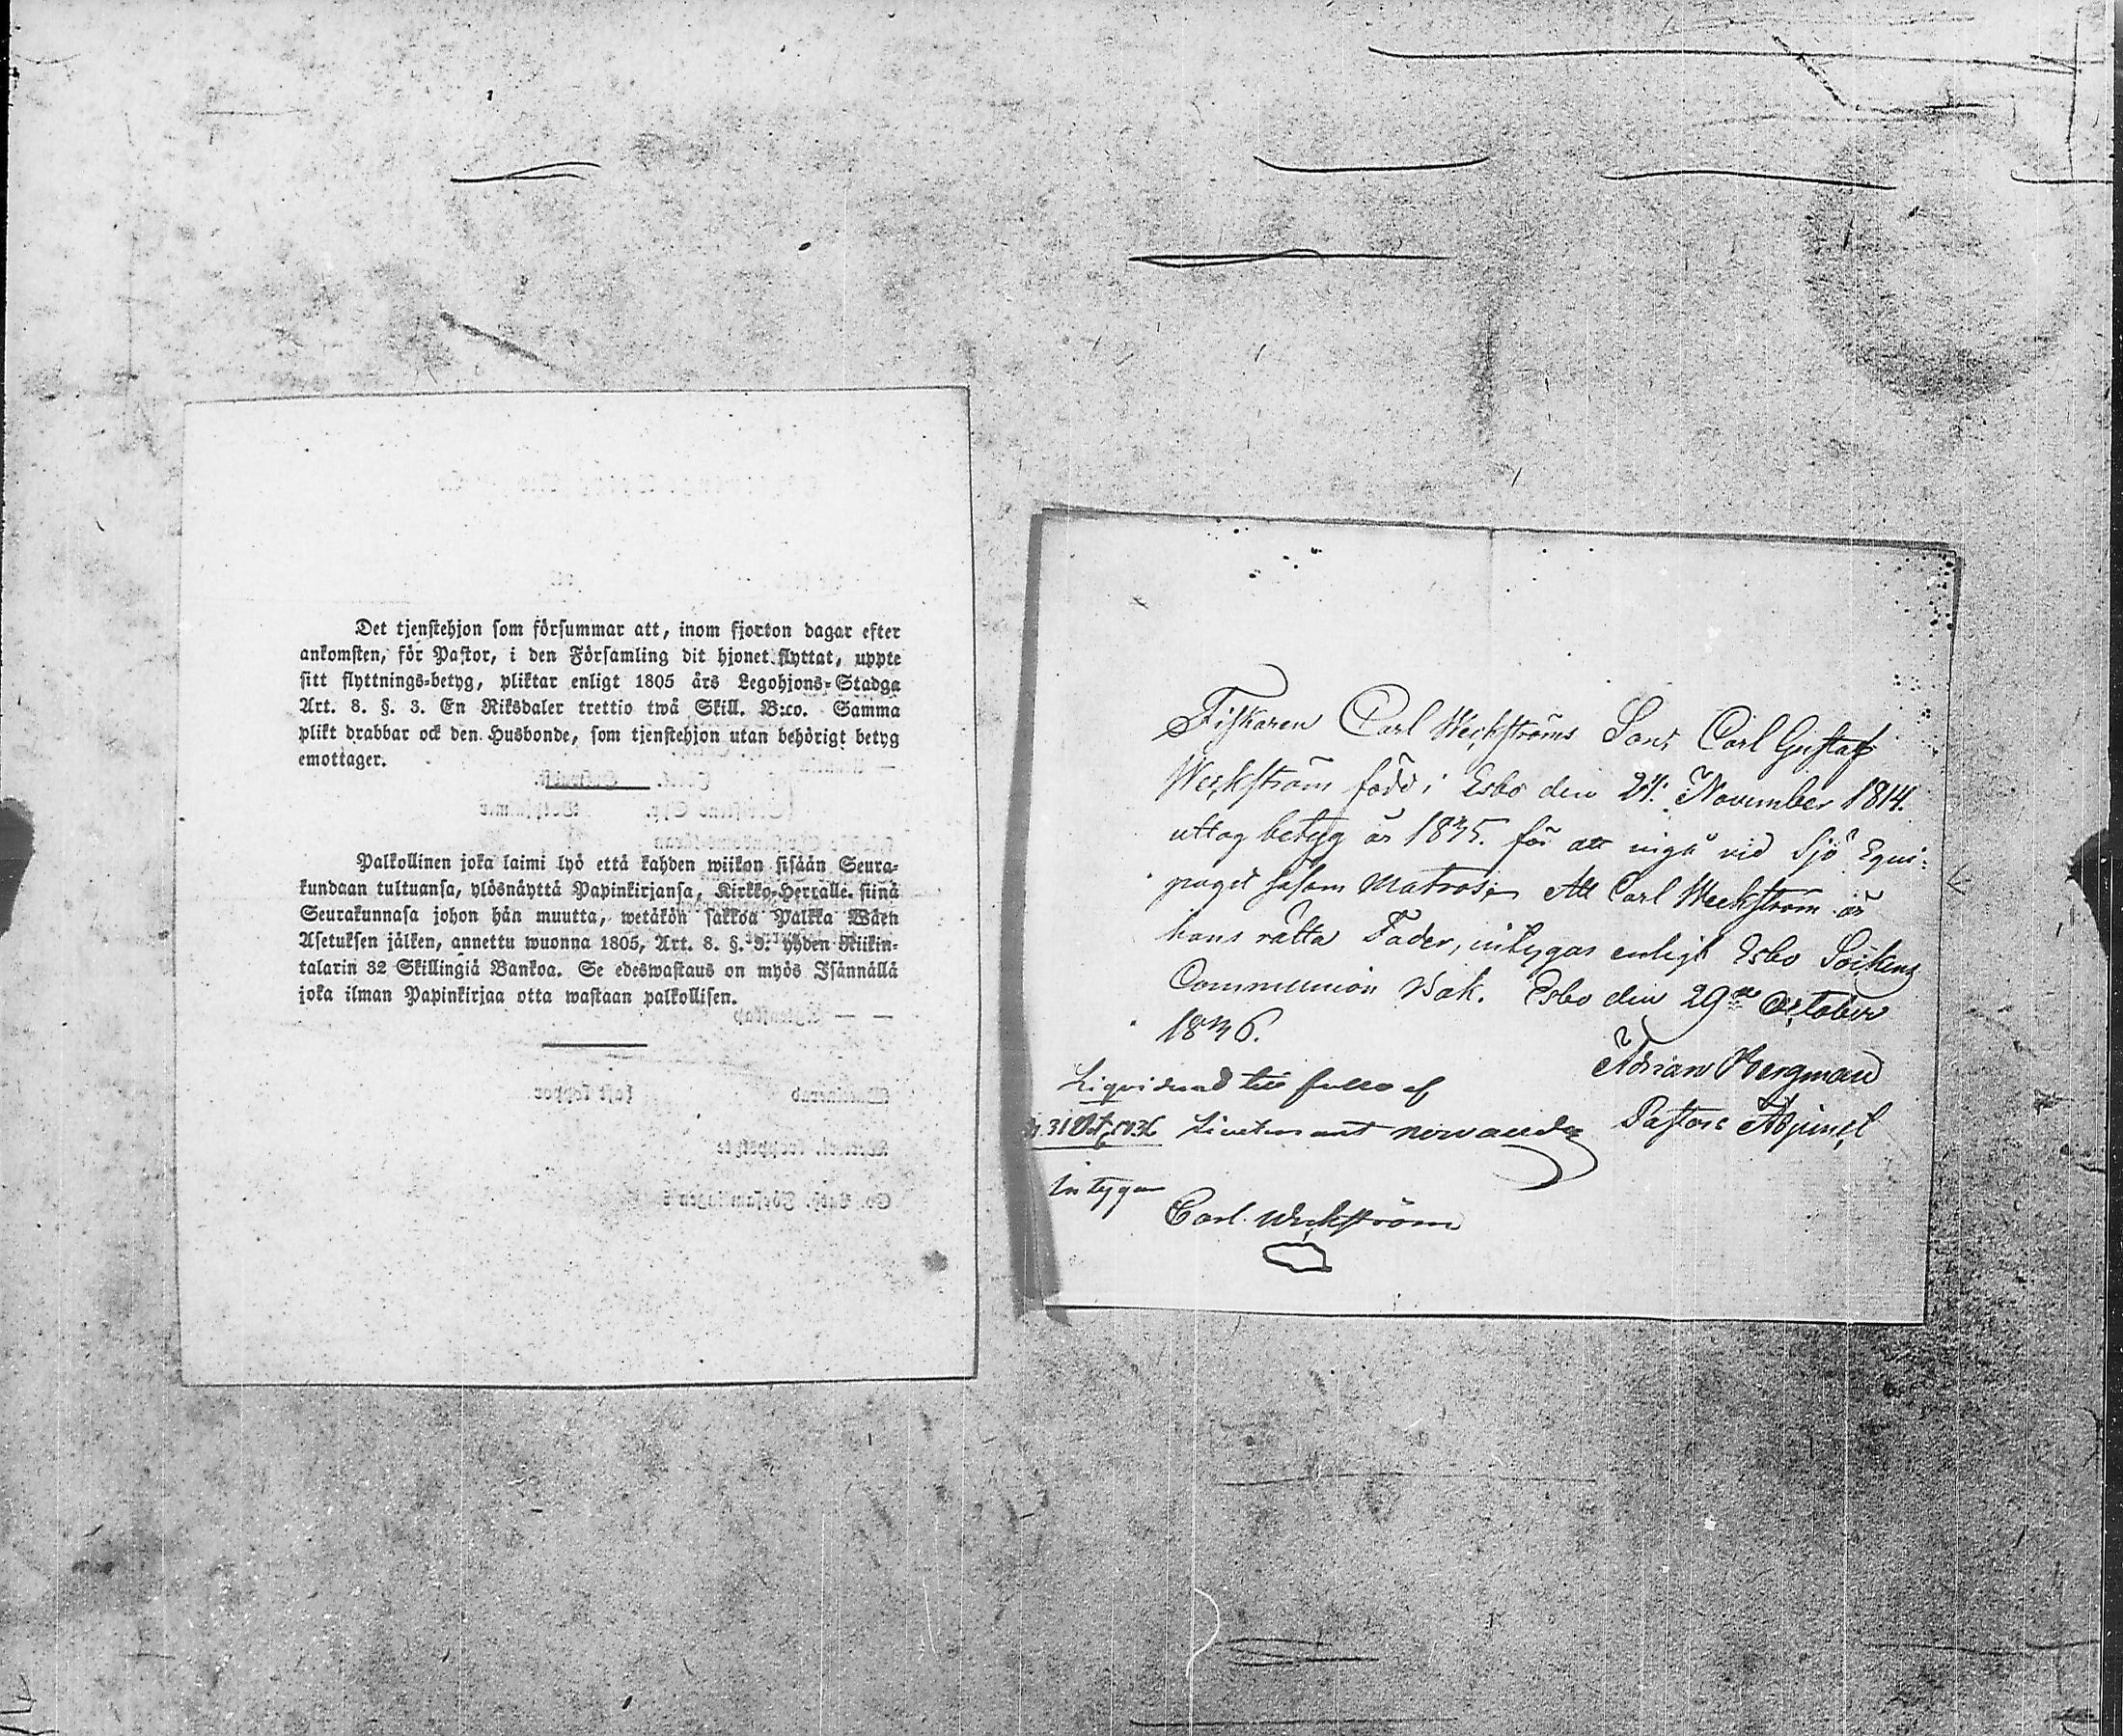 Det tjenstehjon som försummar att, inom fjorton dagar efter
ankomsten, för Pastor, i den Församling dit hjonet flyttat, uppte
sitt flyttnings-betyg, pliktar enligt 1805 års Legohjons-Stadga
Art. 8. §. 3. En Riksdaler trettio twå Skill. B:co. Samma
plikt drabbar ock den Husbonde, som tjenstehjon utan behörigt betyg
emottager.
Palkollinen joka laimi lyö että kahden wiikon sisään Seura-
kundaan tultuansa, ylösnäyttä Papinkirjansa, Kirkko-Herralle siinä
Seurakunnasa johon hän muutta, wetäkön sakkoa Palkka Wäen
Asetuksen jälken, annettu wuonna 1805, Art. 8. §. 3. yhden Riikin-
talarin 32 Skillingiä Bankoa. Se edeswastaus on myös Isännällä
joka ilman Papinkirjaa otta wastaan palkollisen.
Fiskaren Carl Weckströms Son, Carl Gustaf
Weckström född i Esbo den 24. November 1814.
uttog betyg år 1835. för att ingå vid Sjö Equi-
paget såsom Matros; Att Carl Weckström är
hans rätta Fader, intygas enligt Esbo Sockens
Communion Bok. Esbo den 29de October
1836.
Adrian Bergman
Pastors Adjunct
Liquiderad till fullo af
31 Oct 1836 Lieutenant
Intygar
Carl Weckström